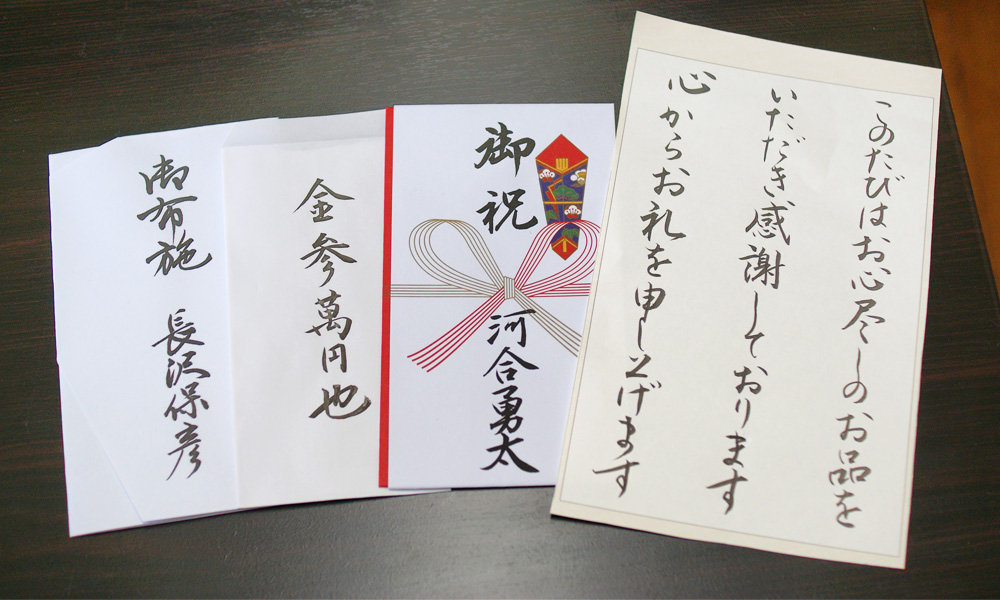 御布施
長沢保彦
金参萬円也
御祝
河合勇太
このたびはお心尽しのお品を
いただき感謝しております
心からお礼を申し上げます